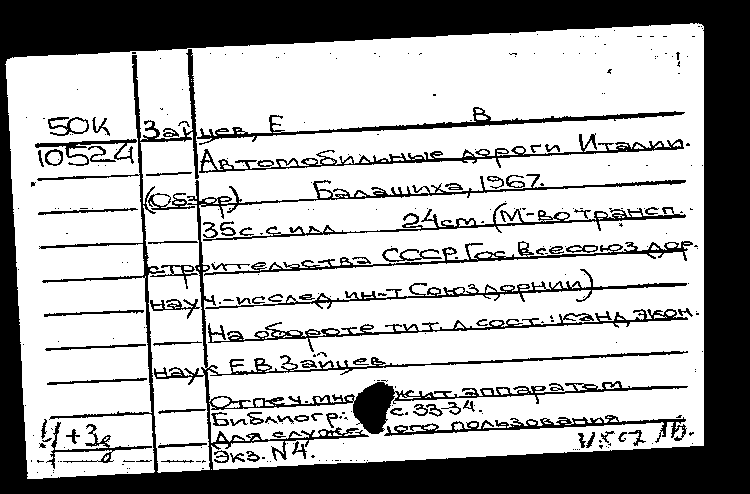 50К Зайцев, Е В
10524 Автомобильные дороги Италии.
(Обзор) Балашиха, 1967.
35с. с илл. 24см. (М-во трансп.
строительства СССР. Гос. Всесоюз. дор.
науч.-исслед. ин-т Союздорнии)
На обороте тит. л. сост.: канд. экон.
наук Е.В. Зайцев.
Отпеч. множит. аппаратом
Библиогр.: с. 33-34.
Для служебного пользования
Экз. N4.